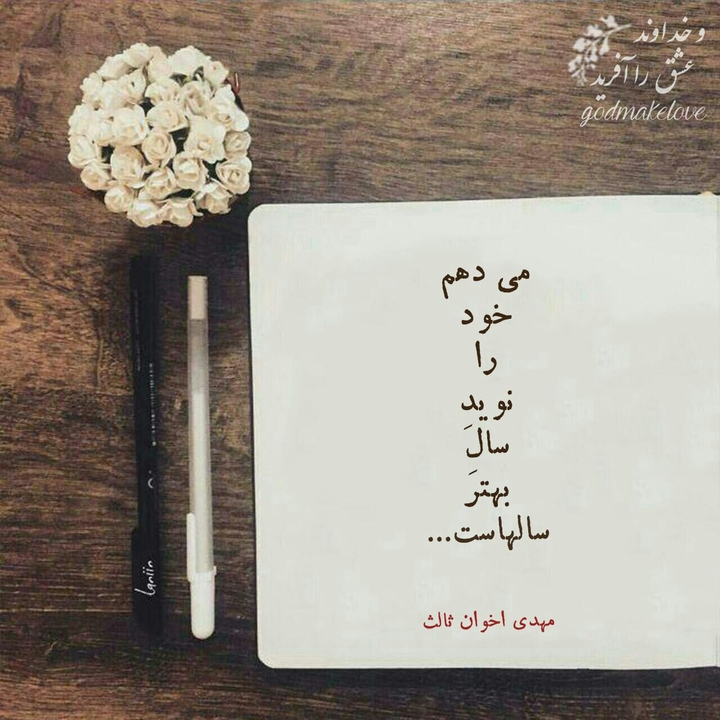 و خداوند
عشق را آفرید
godmakelove
می دهم
خود
را
نویدِ
سالَ
بهترَ
سالهاست...
مهدی اخوان ثالث